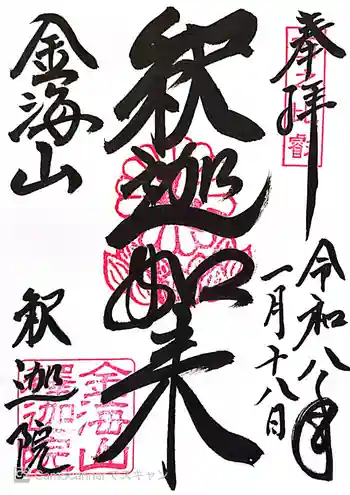 奉拝
令和八年
一月十八日
釈迦如来
金海山
釈迦院
金海山
釋迦院